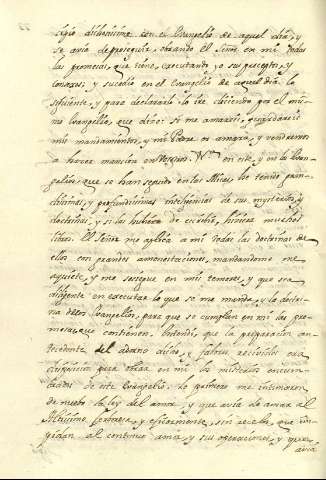 altissima con el Evangelio de aquel dia, y
se avia de proseguir, obrando el Señor en mi todas
las promesas, que tiene, executando yo sus preceptos, y
consejos; y sucedió en el Evangelio de aquel dia lo
siguiente, y para declararlo lo ire diciendo por el mis-
mo Evangelio, que dice: si me amareis, guardareis
mis mandamientos, y mi Padre os amará, y vendremos
a hacer mansion en vosotros. en este, y en los Evan-
gelios, que se han seguido en las Missas, he tenido gran-
dissimas, y profundissimas inteligencias de sus mysterios, y
doctrinas, y si las hubiera de escribir, hiciera muchos
libros. El Señor me aplica a mi todas las doctrinas de
ellos con grandes amonestaciones, mandandome me
aquiete, y me sosiegue en mis temores, y que sea
diligente en executar lo que se me manda, y la doctri-
na de los Evangelios, para que se cumplan en mi las pro-
mesas, que contienen. Entendi, que la preparacion an-
tecedente del adorno divino, y favores recividos era
para obrar en mi los misterios encum-
brados de este Evangelio. Lo primero me intimaron
de nuevo la ley del amor, y que avia de amar al
Altissimo y eficazmente, sin recelos, que im-
pidan al continuo amor y sus operaciones, y que
avia